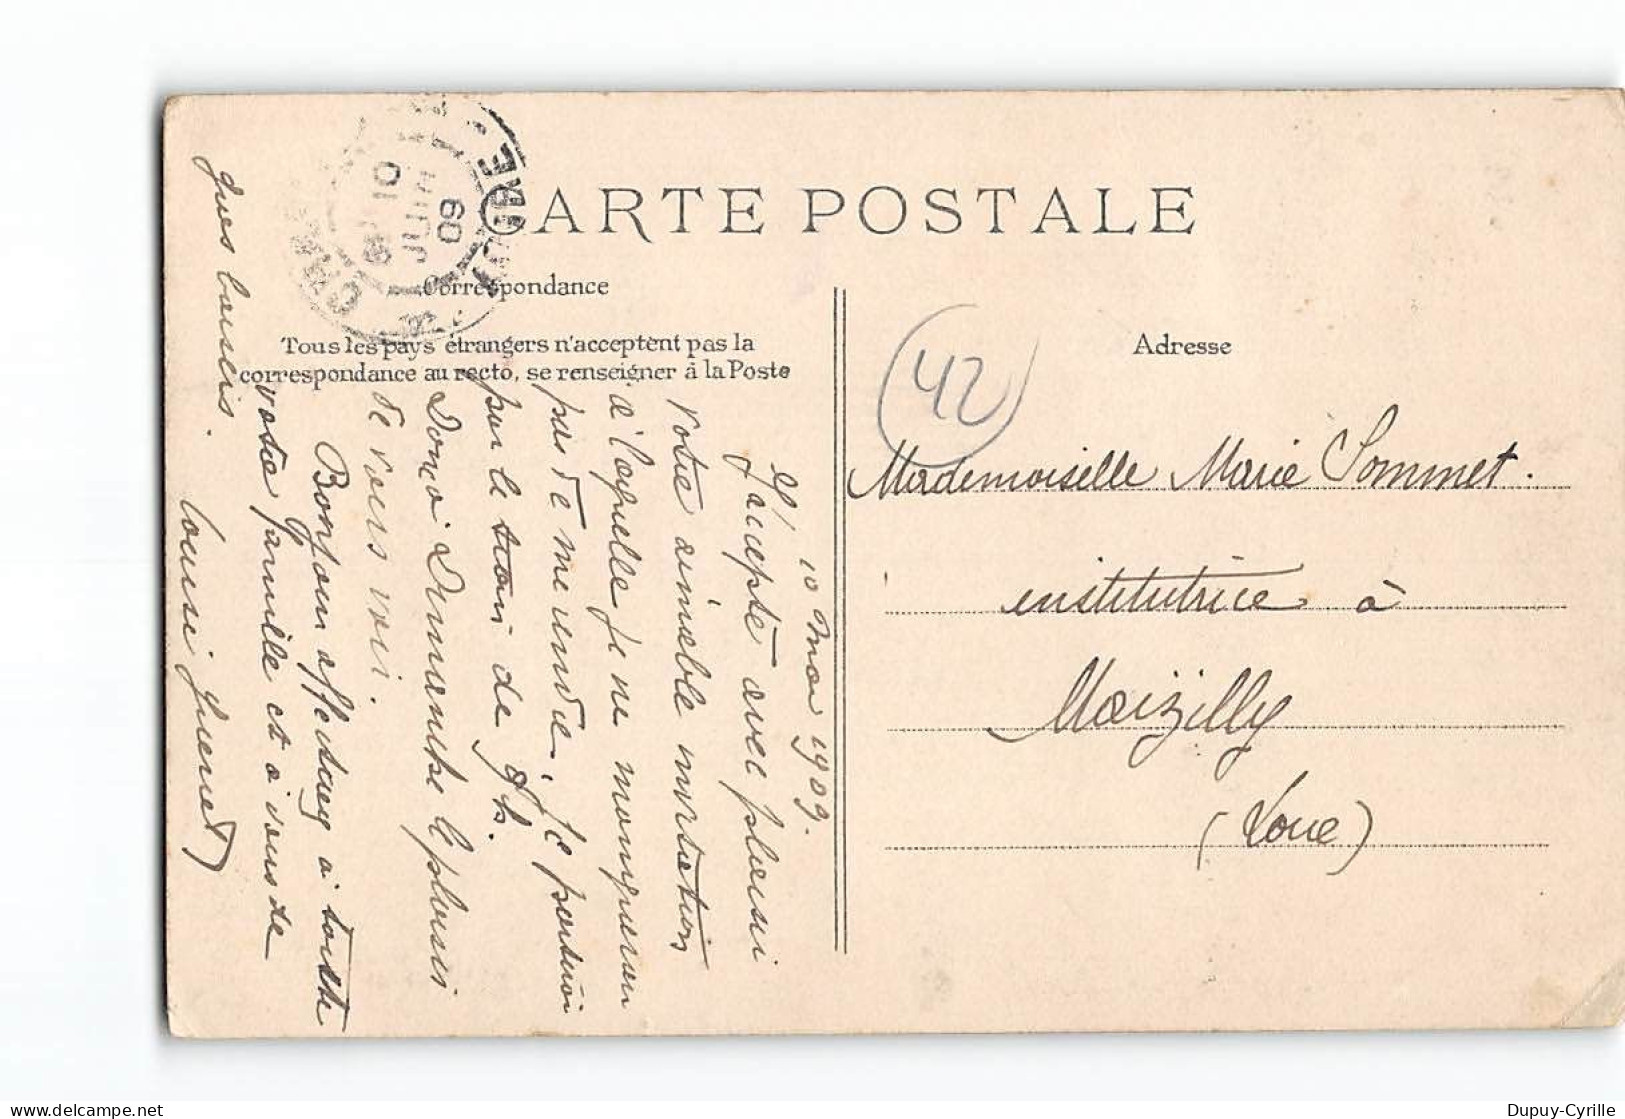 CARTE POSTALE
Correspondance
Tous les pays étrangers n'acceptent pas la
correspondance au recto, se renseigner à la Poste
Adresse
42
10 JUIN 09
LOIRE
Mademoiselle Marie Sommet.
institutrice à
Maizilly
(Loire)
10 Mai 1909.
J'accepte avec plaisir
votre aimable invitation
à laquelle je ne manquerai
pas de me rendre, je partirai
par le train de 9h.
Donc à Dimanche le plaisir
de vous voir.
Bonjour affectueux à toute
votre famille et à vous de
gros baisers.
Louise
Dupuy-Cyrille